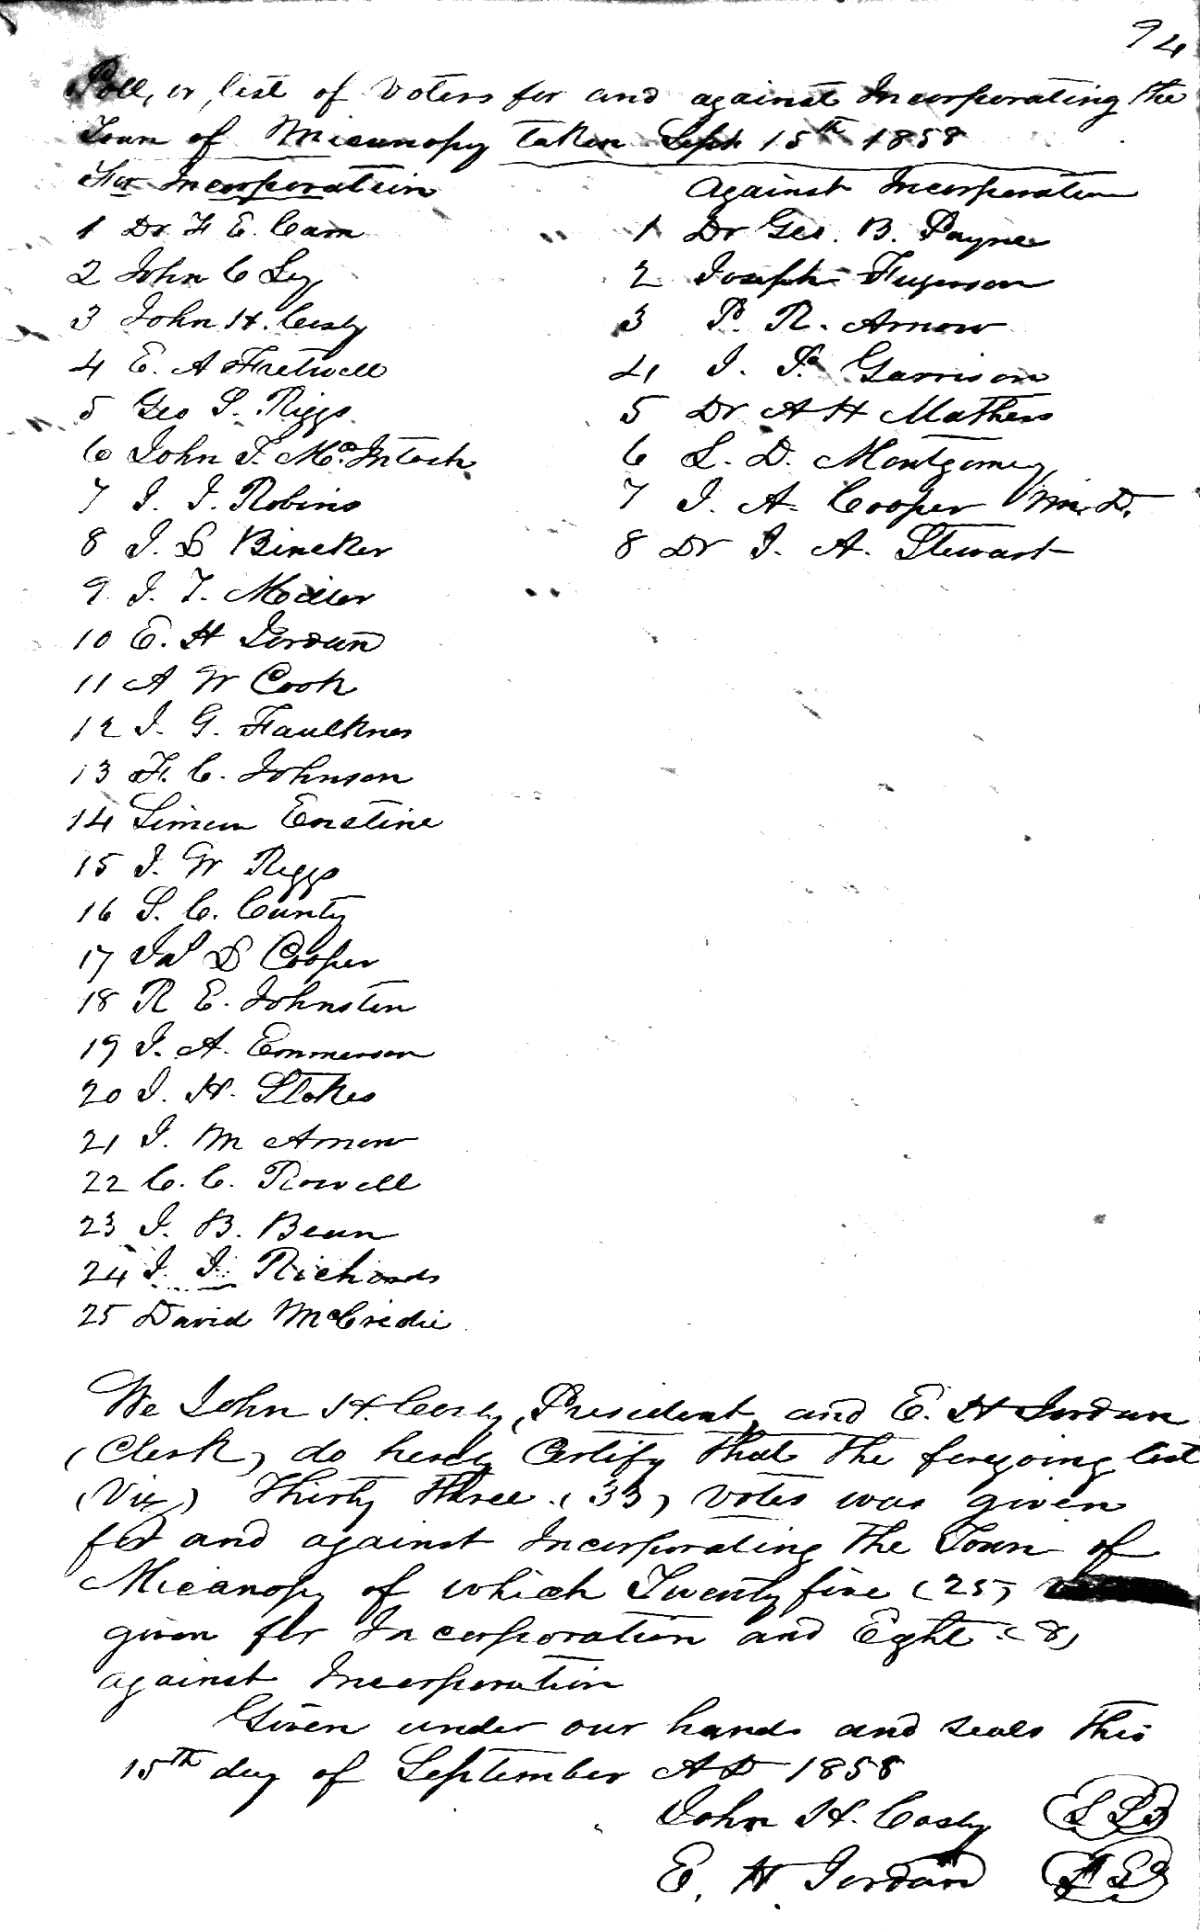 94
Poll, or, list of Voters for and against Incorporating the
Town of Micanopy taken Sept 15th 1858
For Incorporation
1 Dr. F E. Carn
2 John C Ley
3 John H. Cosby
4 E. A Fretwell
5 Geo S. Riggs
6 John T. McIntosh
7 J. J. Robins
8 J. S Bineker
9. J. T. Miller
10 E. H Jordan
11 A W Cook
12 J. G. Faulkner
13 F. C. Johnson
14 Simeon Erstine
15 J. W Riggs
16 S. C. Cunty
17 Jas S Cooper
18 R E. Johnston
19 J. A. Emmerson
20 J. H. Stokes
21 J. M Arnow
22 C. C. Rowell
23 J. B. Bean
24 J. J. Richards
25 David McCredie
Against Incorporation
1 Dr Geo. B. Payne
2 Joseph Fugerson
3 P. R. Arnow
4 J. P. Garrison
5 Dr A H Mathers
6 L. D. Montgomey
7 J. A. Cooper M.D.
8 Dr J. A. Stewart
We John H. Cosby, President, and E. H Jordan
(Clerk) do herby Certify that the foregoing list
(Viz) Thirty three (33) votes was given
for and against Incorporating the Town of
Micanopy of which Twenty five (25)
given for Incorporation and Eght (8)
against Incorporation
Given under our hands and seals this
15th day of September AD 1858
John H. Cosby
E. H. Jordan